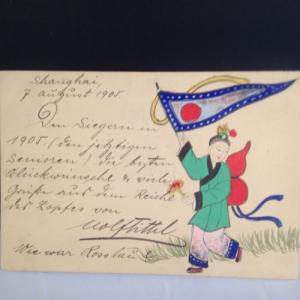 Shanghai,
7 August 1905.
Den Siegern in
1905. (den jetzigen
Senioren) die besten
Glückwünsche & viele
Grüße aus dem Reiche
des Zopfes von
Wie war Rosslau?